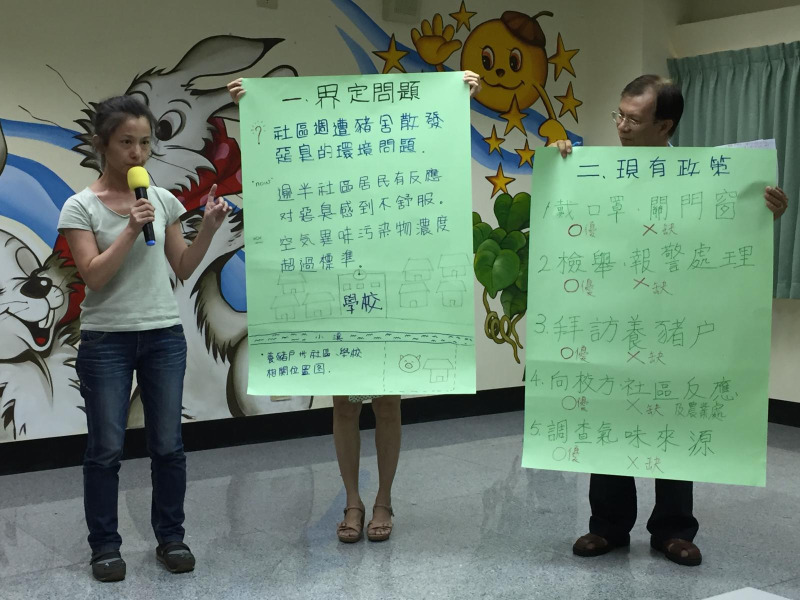 一.界定問題
社區週遭豬舍散發
惡臭的環境問題.
過半社區居民有反應
对惡臭感到不舒服。
空氣異味污染物濃度
超過標準。
學校
小溪
養豬戶所社區、學校
相関位置图.
二、現有政策
1.戴口罩.關門窗
優 缺
2.檢舉.報警處理
優 缺
3.拜訪養豬戶
優 缺
4.向校方社區反應
優 缺 及農業處
5.調查氣味來源
優 缺